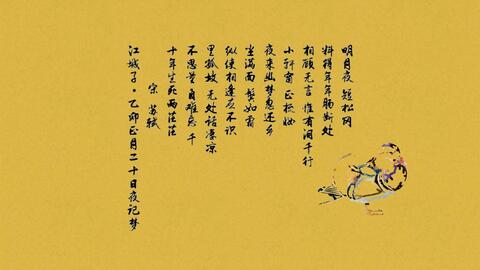 江城子·乙卯正月二十日夜记梦
宋 苏轼
十年生死两茫茫
不思量 自难忘 千
里孤坟 无处话凄凉
纵使相逢应不识
尘满面 鬓如霜
夜来幽梦忽还乡
小轩窗 正梳妆
相顾无言 惟有泪千行
料得年年肠断处
明月夜 短松冈